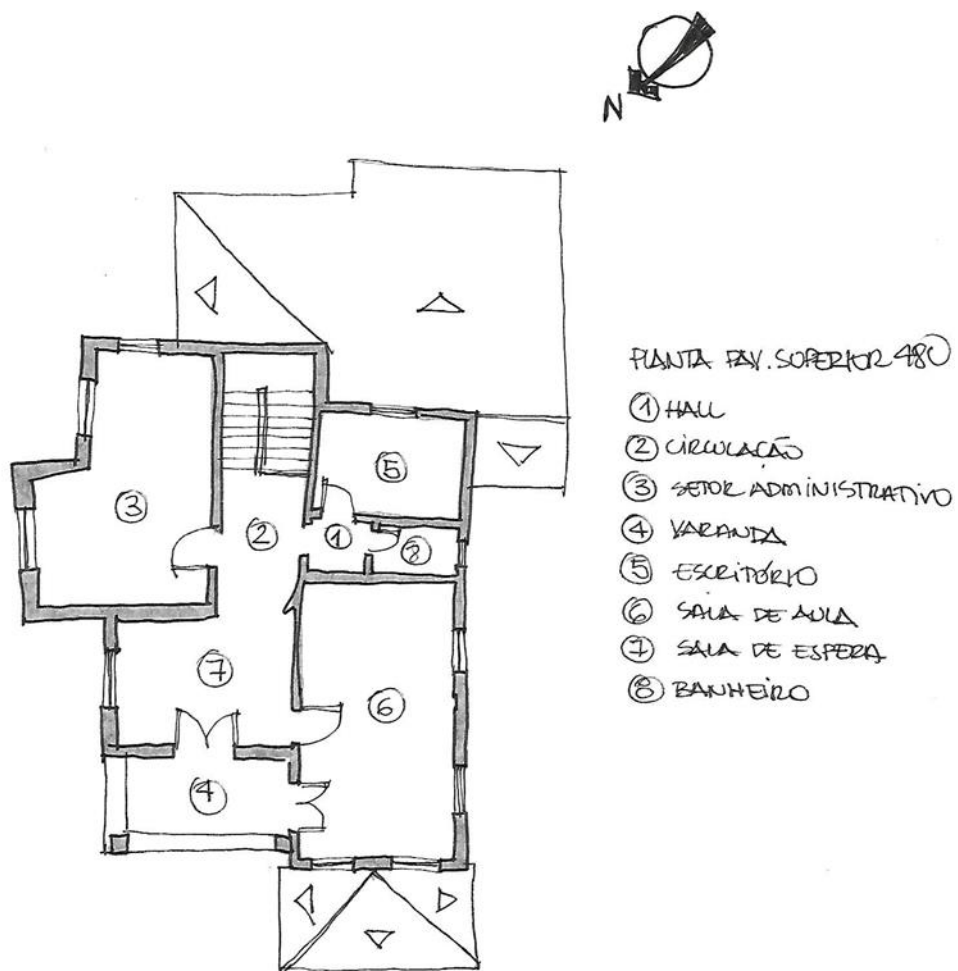 N
PLANTA PAV. SUPERIOR 480
1 HALL
2 CIRCULAÇÃO
3 SETOR ADMINISTRATIVO
4 VARANDA
5 ESCRITÓRIO
6 SALA DE AULA
7 SALA DE ESPERA
8 BANHEIRO
5
3
2
1
8
7
6
4